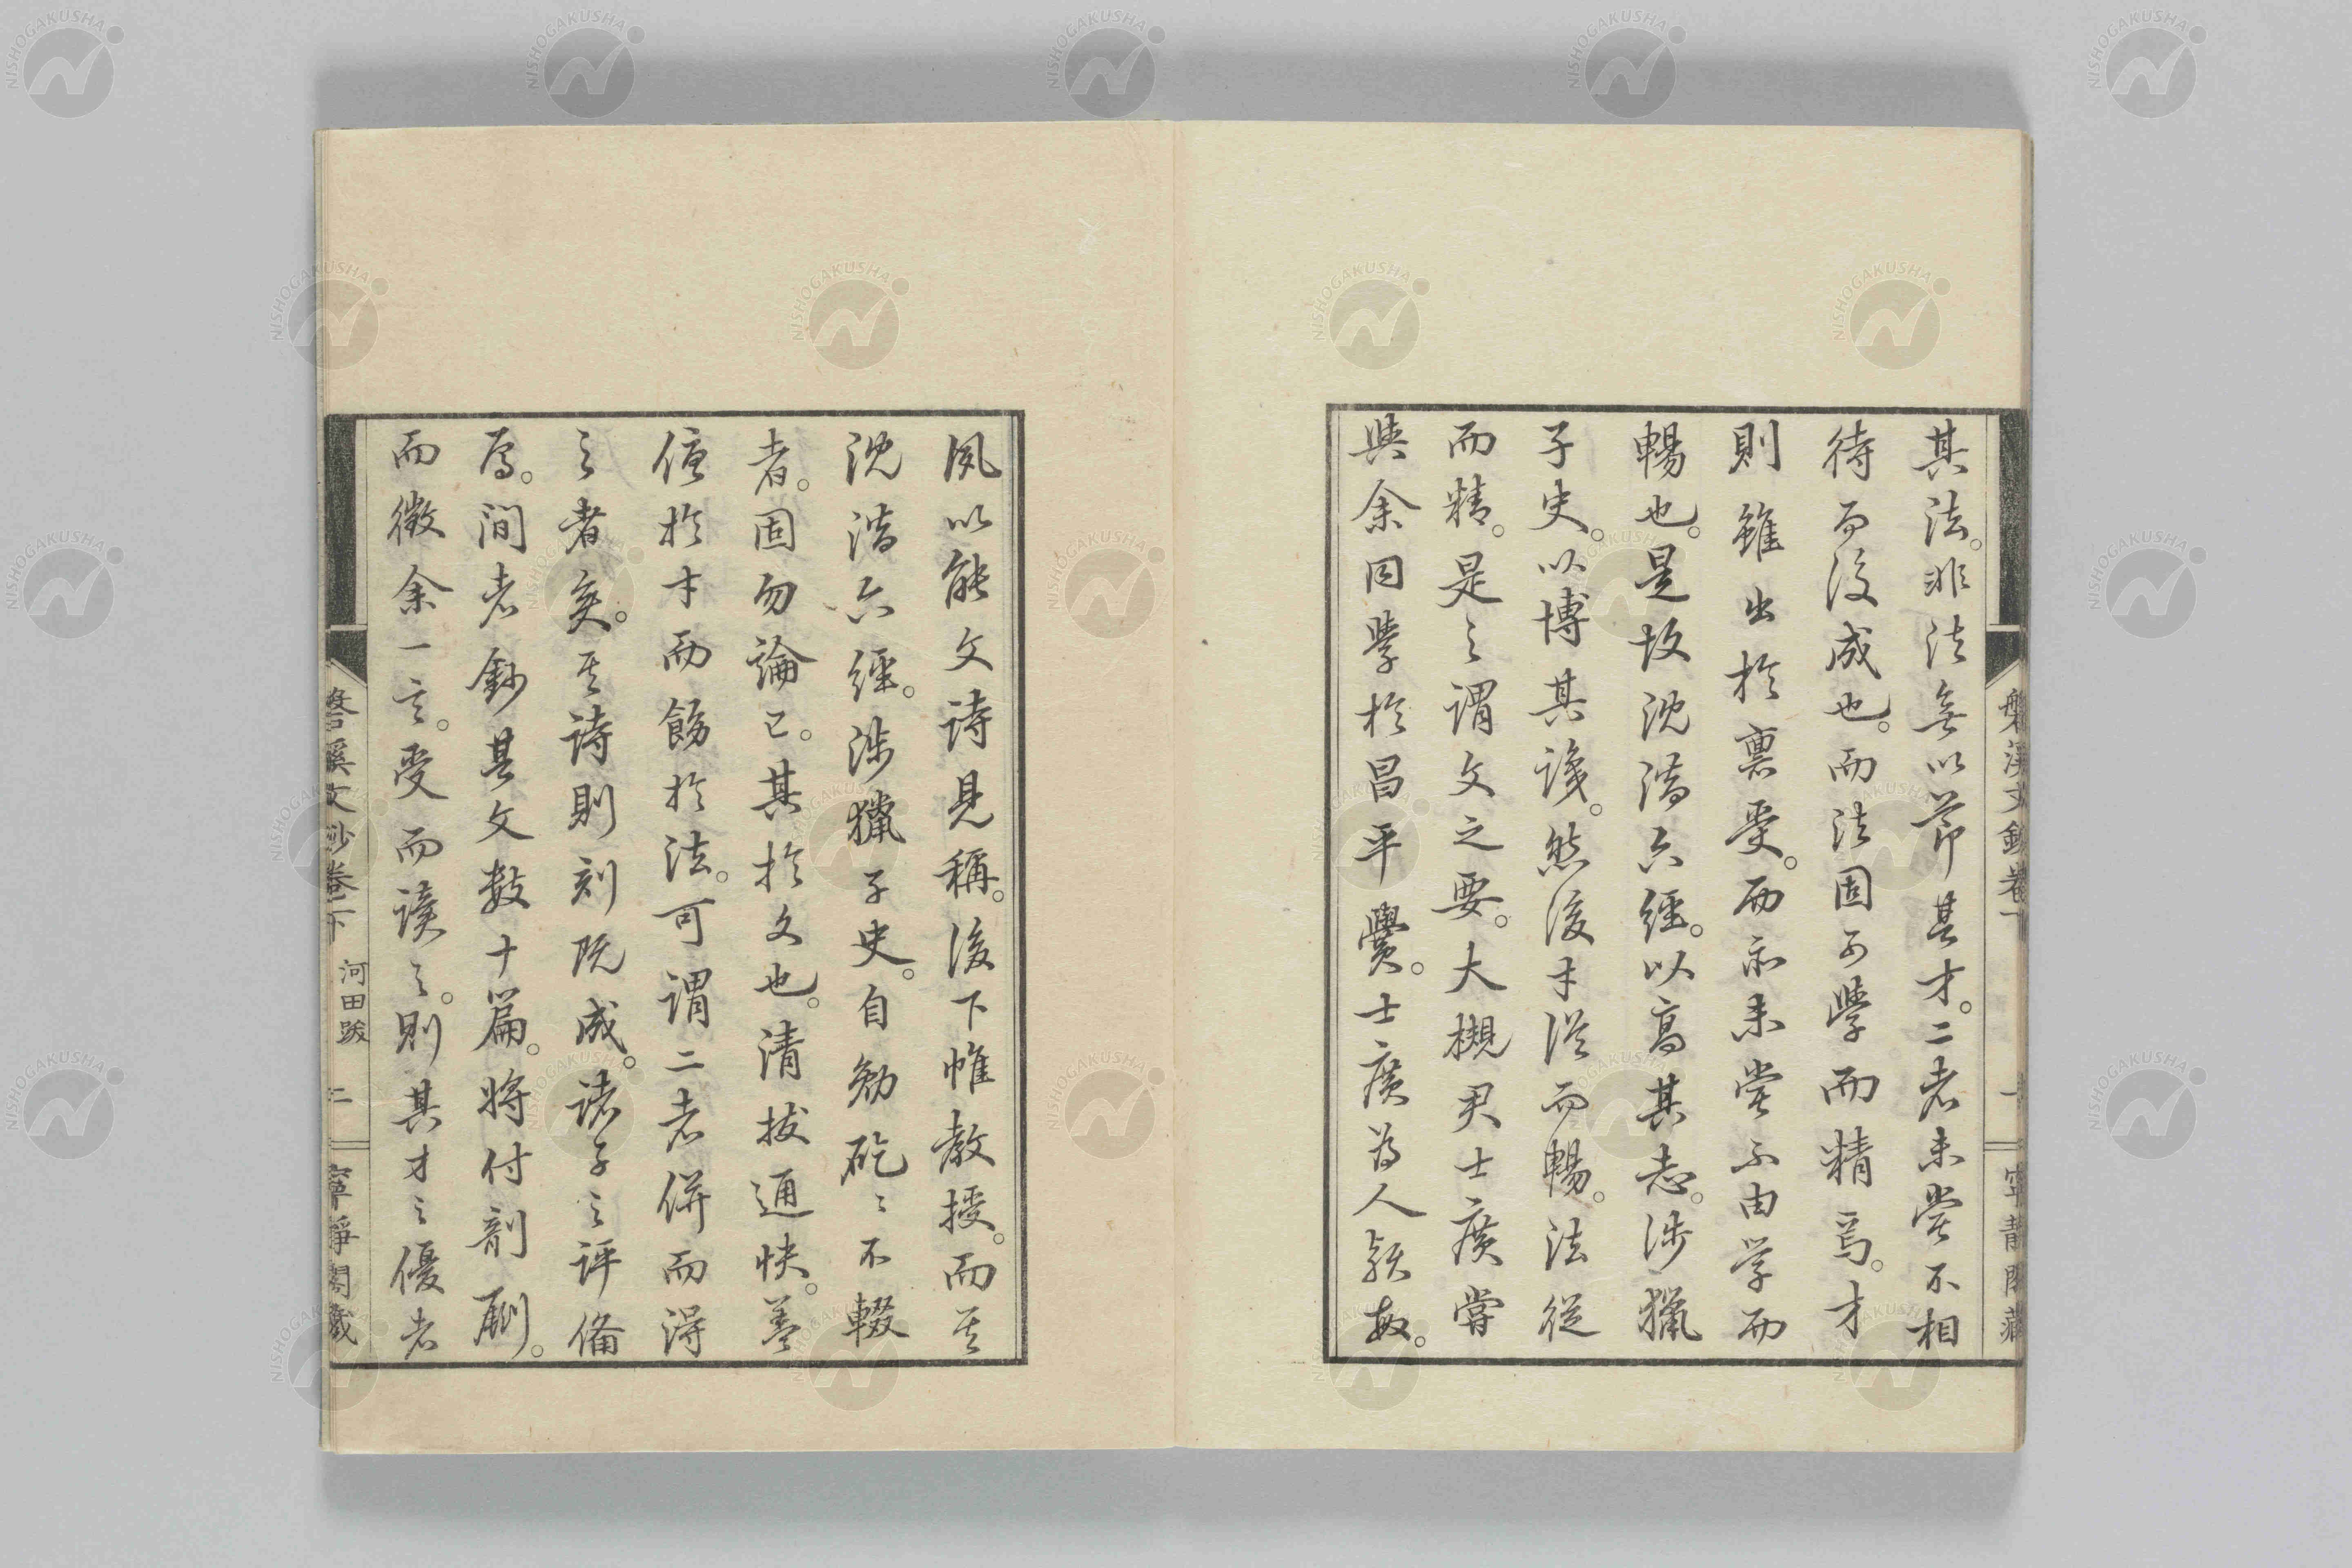 其法。非法無以節其才。二者未嘗不相
待而後成也。而法固可學而精焉。才
則雖出於稟受。而亦未嘗不由学而
暢也。是故沈潛六經。以高其志。涉獵
子史。以博其識。然後才従而暢。法從
而精。是之謂文之要。大槻君士廣嘗
與余同學於昌平黌。士廣為人頴敏。
夙以能文詩見稱。後下帷教授。而其
沈潛六經。涉獵子史。自勉矻〻不輟
者。固勿論已。其於文也。清拔通快。蓋
優於才而餝於法。可謂二者併而得
之者矣。其詩則刻既成。諸子之評備
焉。間者鈔其文數十篇。將付剞劂。
而徵余一言。受而讀之。則其才之優者
磐溪文鈔卷下
河田跋
一
寧靜閣藏
磐溪文鈔卷下
河田跋
二
寧靜閣藏
NISHOGAKUSHA